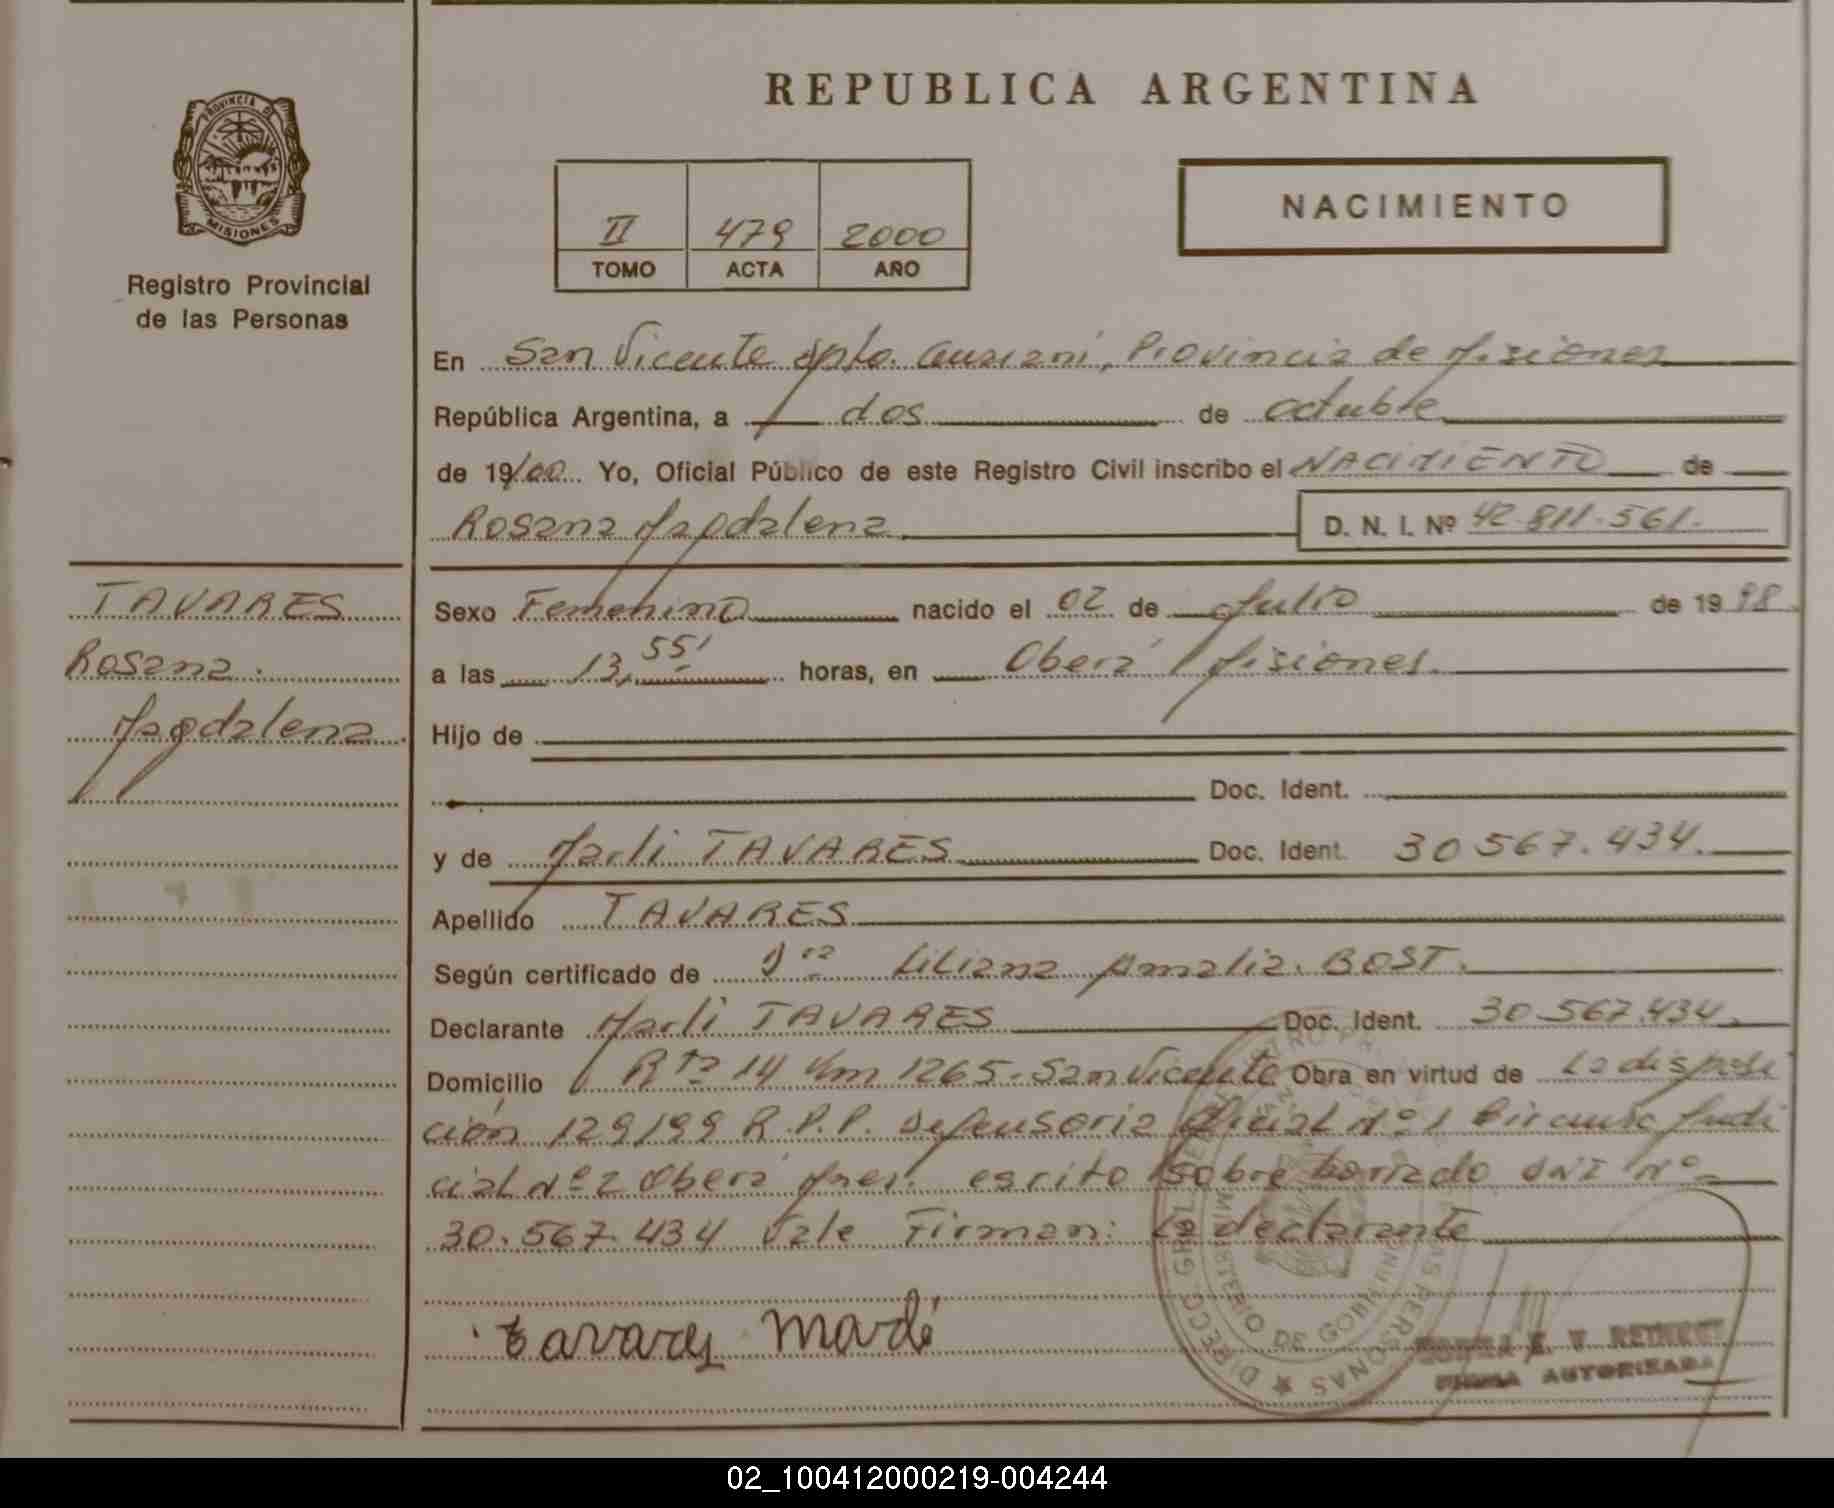 REPUBLICA ARGENTINA
PROVINCIA D
MISIONES
Registro Provincial
de las Personas
II 479 2000
TOMO ACTA AÑO
NACIMIENTO
En San Vicente Dpto. Guaraní, Provincia de Misiones
República Argentina, a dos de octubre
de 19/00 Yo, Oficial Público de este Registro Civil inscribo el NACIMIENTO de
Rosana Magdalena D. N. I. Nº 42.811.561.
TAVARES
Rosana
Magdalena
Sexo Femenino nacido el 02 de Julio de 1998
a las 13,55' horas, en Oberá Misiones.
Hijo de
Doc. Ident.
y de Marli TAVARES Doc. Ident. 30567.434.
Apellido TAVARES
Según certificado de Dra Liliana Amalia. BOST.
Declarante Marli TAVARES Doc. Ident. 30.567.434.
Domicilio Rta 14 Km 1265-San Vicente Obra en virtud de La disposi
ción 129/99 R.P.P. Defensoria Oficial Nº1 Circunsc Judi
cial Nº2 Oberá Mnes. escrito sobre borrado DNI Nº
30.567.434 Vale Firman: La declarante
Tavares Marli
DIRECC. GRAL. DE PERSONAS
MINISTERIO DE GOBIERNO
FIRMA AUTORIZADA
02_100412000219-004244